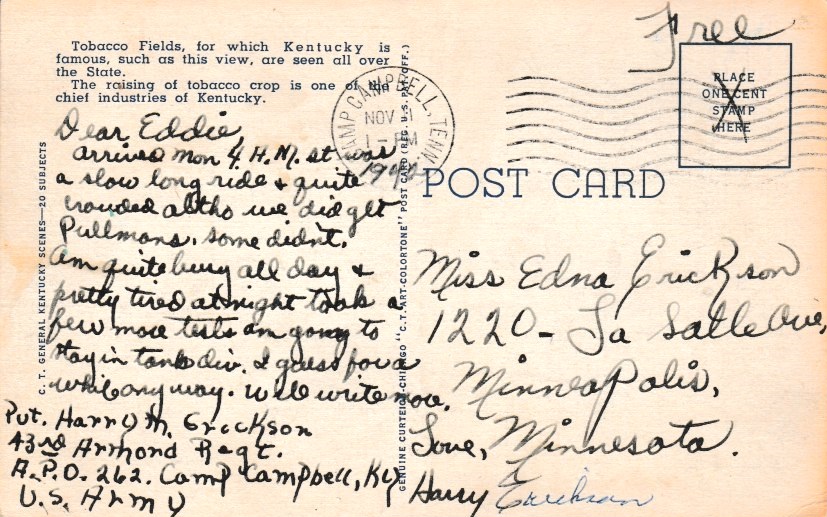 Free
Tobacco Fields, for which Kentucky is
famous, such as this view, are seen all over
the State.
The raising of tobacco crop is one of the
chief industries of Kentucky.
CAMP CAMPBELL, TENN.
NOV
1 - PM
1942
PLACE
ONE CENT
STAMP
HERE
POST CARD
Dear Eddie,
arrived Mon 4 A.M. it was
a slow long ride & quite
crowded altho we did get
Pullmans. some didn't.
am quite busy all day &
pretty tired at night took a
few more tests am going to
stay in tank div. I guess for a
while anyway. Will write more.
Love,
Harry Erickson
Pvt. Harry M. Erickson
43rd Armond Regt.
A.P.O. 262. Camp Campbell, Ky
U.S. Army
Miss Edna Erickson
1220 - La Salle Ave,
Minneapolis,
Minnesota.
C. T. GENERAL KENTUCKY SCENES—20 SUBJECTS
GENUINE CURTEICH-CHICAGO "C.T. ART-COLORTONE" POST CARD (REG. U.S. PAT. OFF.)